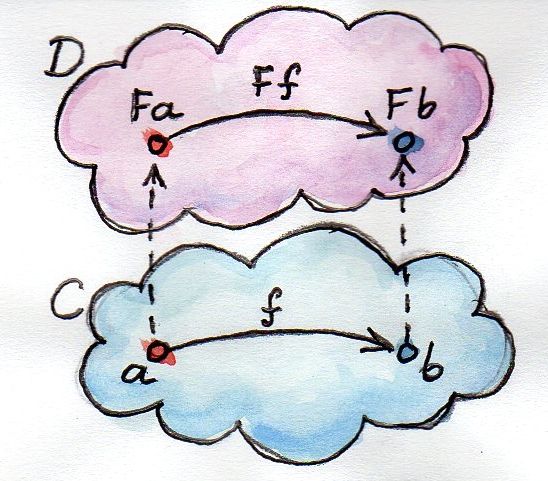 D
Ff
Fa Fb
C
f
a b